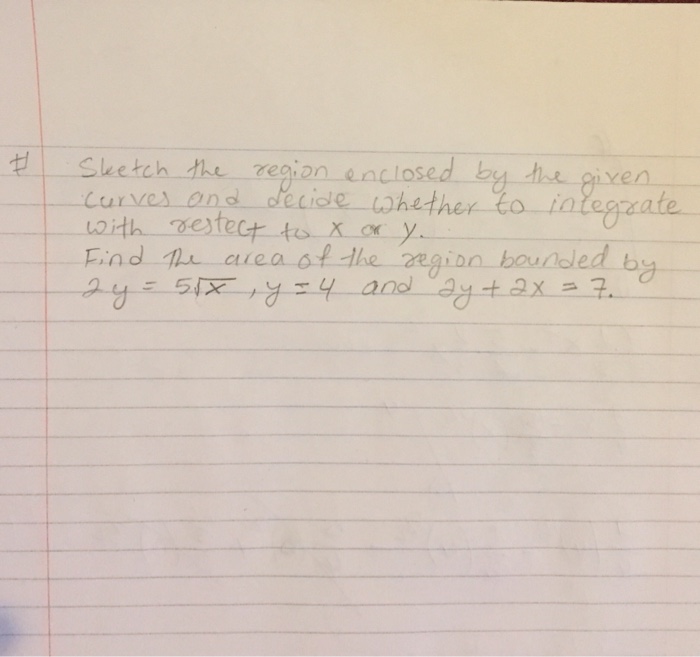 # Sketch the region enclosed by the given
curves and decide whether to integrate
with restect to x or y.
Find the area of the region bounded by
2y = 5√x , y = 4 and 2y + 2x = 7.